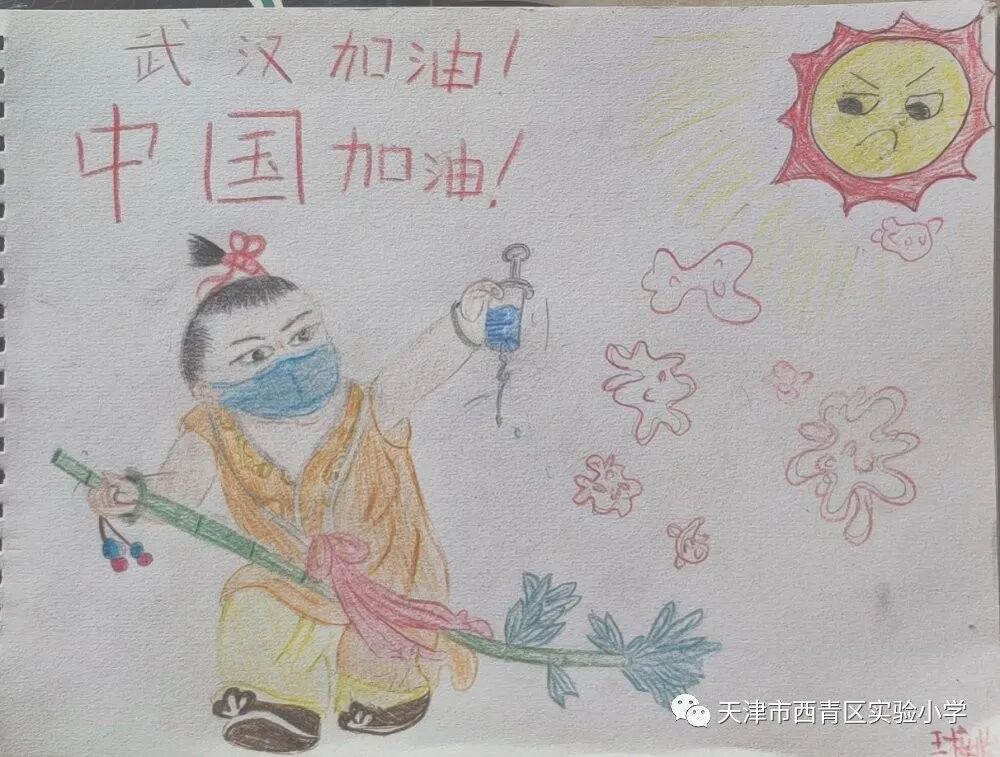 武汉加油!
中国加油!
天津市西青区实验小学